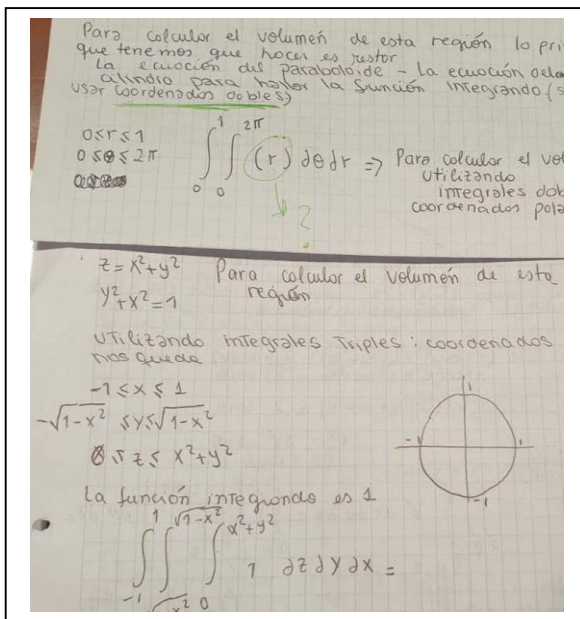 Para calcular el volumen de esta región lo pri
que tenemos que hacer es restar
La ecuación del paraboloide - La ecuación del
cilindro para hallar la función integrando (s
usar coordenadas dobles)
0≤r≤1
0≤θ≤2π
∫₀¹ ∫₀^2π (r) dθ dr => Para calcular el vol
utilizando
integrales dob
coordenadas pola
?
z = x²+y² Para calcular el volumen de esta
y²+x²=1 región
Utilizando integrales Triples: coordenadas
nos queda
-1≤x≤1
-√1-x² ≤y≤√1-x²
0≤z≤ x²+y²
1
-1 1
-1
la función integrando es 1
∫₋₁¹ ∫^√1-x² ∫₀^x²+y² 1 dz dy dx =